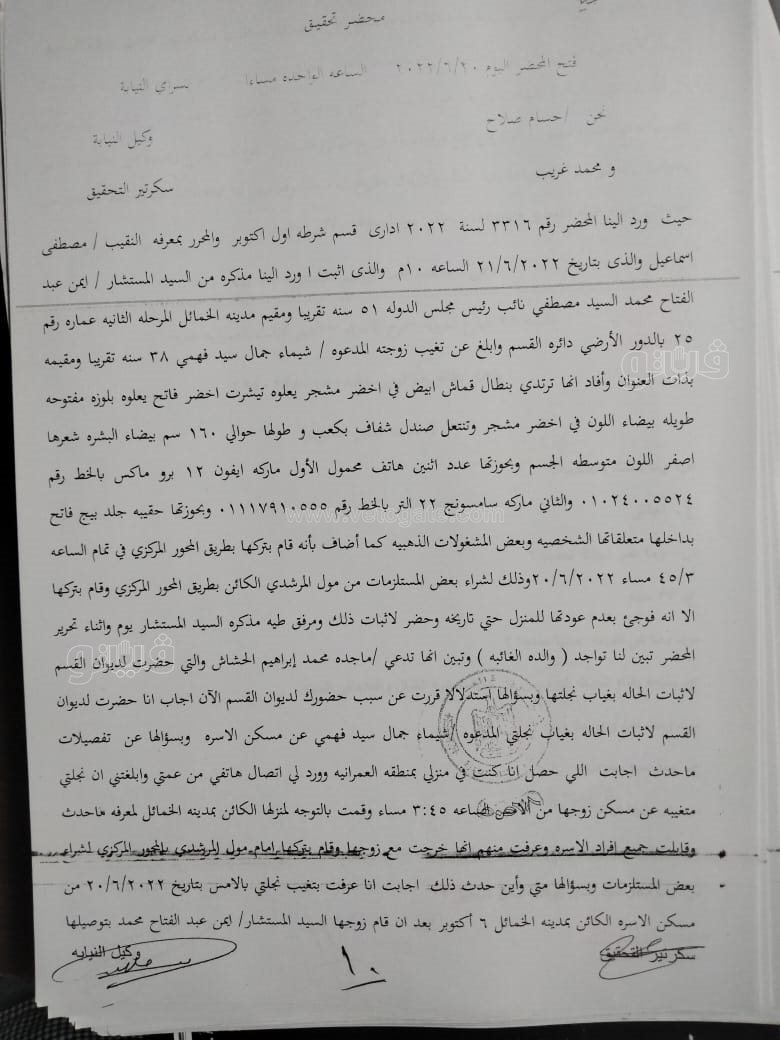 محضر تحقيق
فتح المحضر اليوم ٢٠٢٢/٦/٢٠ الساعه الواحده مساءا بسراي النيابة
نحن /حسام صلاح وكيل النيابة
و محمد غريب سكرتير التحقيق
حيث ورد الينا المحضر رقم ٣٣١٦ لسنة ٢٠٢٢ ادارى قسم شرطه اول اكتوبر والمحرر بمعرفه النقيب / مصطفى
اسماعيل والذى بتاريخ ٢١/٦/٢٠٢٢ الساعه ١٠م والذى اثبت ا ورد الينا مذكره من السيد المستشار / ايمن عبد
الفتاح محمد السيد مصطفي نائب رئيس مجلس الدوله ٥١ سنه تقريبا ومقيم مدينه الخمائل المرحله الثانيه عماره رقم
٢٥ بالدور الأرضي دائره القسم وابلغ عن تغيب زوجته المدعوه / شيماء جمال سيد فهمي ٣٨ سنه تقريبا ومقيمه
بذات العنوان وأفاد انها ترتدي بنطال قماش ابيض في اخضر مشجر يعلوه تيشرت اخضر فاتح يعلوه بلوزه مفتوحه
طويله بيضاء اللون في اخضر مشجر وتنتعل صندل شفاف بكعب و طولها حوالي ١٦٠ سم بيضاء البشره شعرها
اصفر اللون متوسطه الجسم وبحوزتها عدد اثنين هاتف محمول الأول ماركه ايفون ١٢ برو ماكس بالخط رقم
٠١٠٢٤٠٠٥٥٢٤ والثاني ماركه سامسونج ٢٢ التر بالخط رقم ٠١١١٧٩١٠٥٥٥ وبحوزتها حقيبه جلد بيج فاتح
بداخلها متعلقاتها الشخصيه وبعض المشغولات الذهبيه كما أضاف بأنه قام بتركها بطريق المحور المركزي في تمام الساعه
٤٥/٣ مساء ٢٠/٦/٢٠٢٢وذلك لشراء بعض المستلزمات من مول المرشدي الكائن بطريق المحور المركزي وقام بتركها
الا انه فوجئ بعدم عودتها للمنزل حتي تاريخه وحضر لاثبات ذلك ومرفق طيه مذكره السيد المستشار يوم واثناء تحرير
المحضر تبين لنا تواجد ( والده الغائبه ) وتبين انها تدعي /ماجده محمد إبراهيم الحشاش والتي حضرت لديوان القسم
لاثبات الحاله بغياب نجلتها وبسؤالها استدلالا قررت عن سبب حضورك لديوان القسم الآن اجاب انا حضرت لديوان
القسم لاثبات الحاله بغياب نجلتي المدعوه /شيماء جمال سيد فهمي عن مسكن الاسره وبسؤالها عن تفصيلات
ماحدث اجابت اللي حصل انا كنت في منزلي بمنطقه العمرانيه وورد لي اتصال هاتفي من عمتي وابلغتني ان نجلتي
متغيبه عن مسكن زوجها من الساعه ٣:٤٥ مساء وقمت بالتوجه لمنزلها الكائن بمدينه الخمائل لمعرفه ماحدث
وقابلت جميع افراد الاسره وعرفت منهم انها خرجت مع زوجها وقام بتركها امام مول المرشدي بالمحور المركزي لشراء
بعض المستلزمات وبسؤالها متي وأين حدث ذلك اجابت انا عرفت بتغيب نجلتي بالامس بتاريخ ٢٠/٦/٢٠٢٢ من
مسكن الاسره الكائن بمدينه الخمائل ٦ أكتوبر بعد ان قام زوجها السيد المستشار/ ايمن عبد الفتاح محمد بتوصيلها
سكرتير التحقيق وكيل النيابه
١٠
فيتو
www.vetogate.com
فيتو